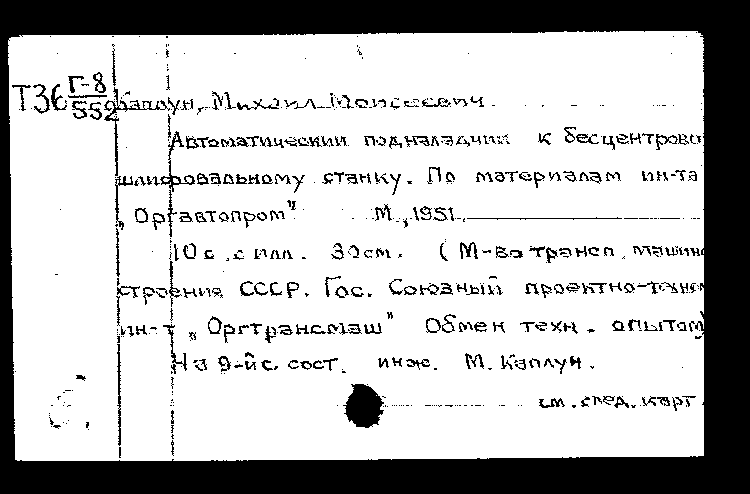 Т36 Г-8
552 Каплун, Михаил Моисеевич
Автоматический подналадчик к бесцентрово
шлифовальному станку. По материалам ин-та
„Оргавтопром" М., 1951.
10 с. с илл. 30 см. (М-во трансп. машино
строения СССР. Гос. Союзный проектно-технол
ин-т „Оргтрансмаш" Обмен техн. опытом)
На 9-й с. сост. инж. М. Каплун.
см. след. карт.